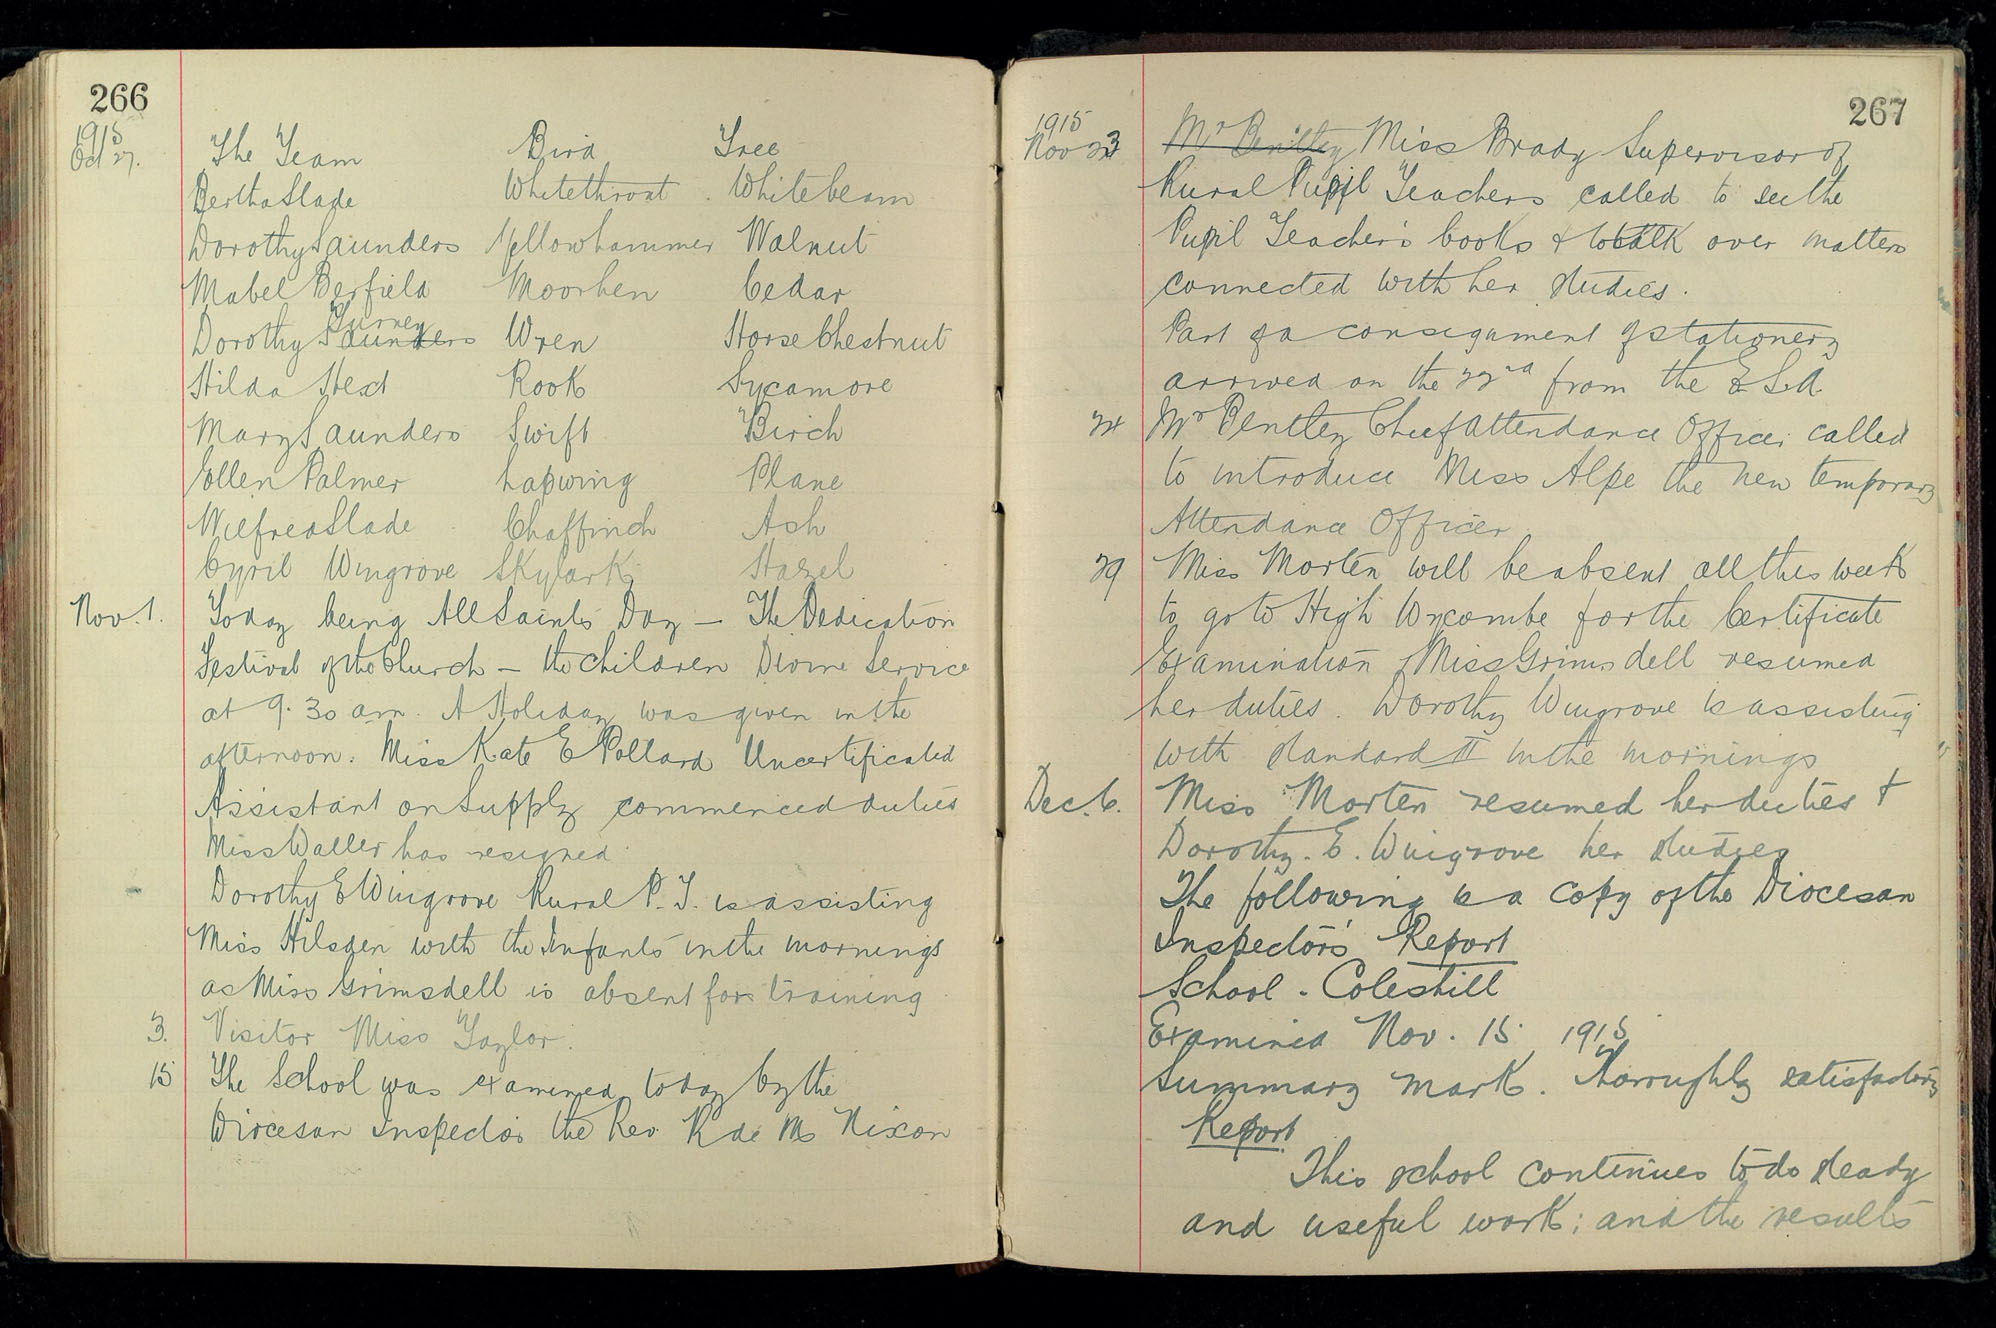 266
1915
Oct 27. The Team Bird Tree
Bertha Slade Whitethroat Whitebeam
Dorothy Saunders Yellowhammer Walnut
Mabel Berfield Moorhen Cedar
Gurney
Dorothy Saunders Wren Horse Chestnut
Hilda Hext Rook Sycamore
Mary Saunders Swift Birch
Ellen Palmer Lapwing Plane
Wilfred Slade Chaffinch Ash
Cyril Wingrove Skylark Hazel
Nov. 1. Today being All Saints Day – The Dedication
Festival of the Church – the children Divine Service
at 9.30 am. A Holiday was given in the
afternoon. Miss Kate E Pollard Uncertificated
Assistant on Supply commenced duties
Miss Waller has resigned
Dorothy E Wingrove Rural P.T. is assisting
Miss Hilsden with the Infants in the mornings
as Miss Grimsdell is absent for training
3. Visitor Miss Taylor.
15 The School was examined today by the
Diocesan Inspector the Rev K de M Nixon
267
1915
Nov 23 Mr Bentley Miss Brady Supervisor of
Rural Pupil Teachers called to see the
Pupil Teacher's books & to talk over matters
connected with her studies.
Part of a consignment of stationery
arrived on the 22nd from the E.S.A.
24 Mr Bentley Chief Attendance Officer called
to introduce Miss Alpe the new temporary
Attendance Officer
29 Miss Morten will be absent all this week
to go to High Wycombe for the Certificate
Examination Miss Grimsdell resumed
her duties. Dorothy Wingrove is assisting
with standard II in the mornings
Dec. 6. Miss Morten resumed her duties &
Dorothy. E. Wingrove her studies
The following is a copy of the Diocesan
Inspector's Report
School - Coleshill
Examined Nov. 15 1915
Summary mark. Thoroughly satisfactory
Report
This school continues to do steady
and useful work; and the results